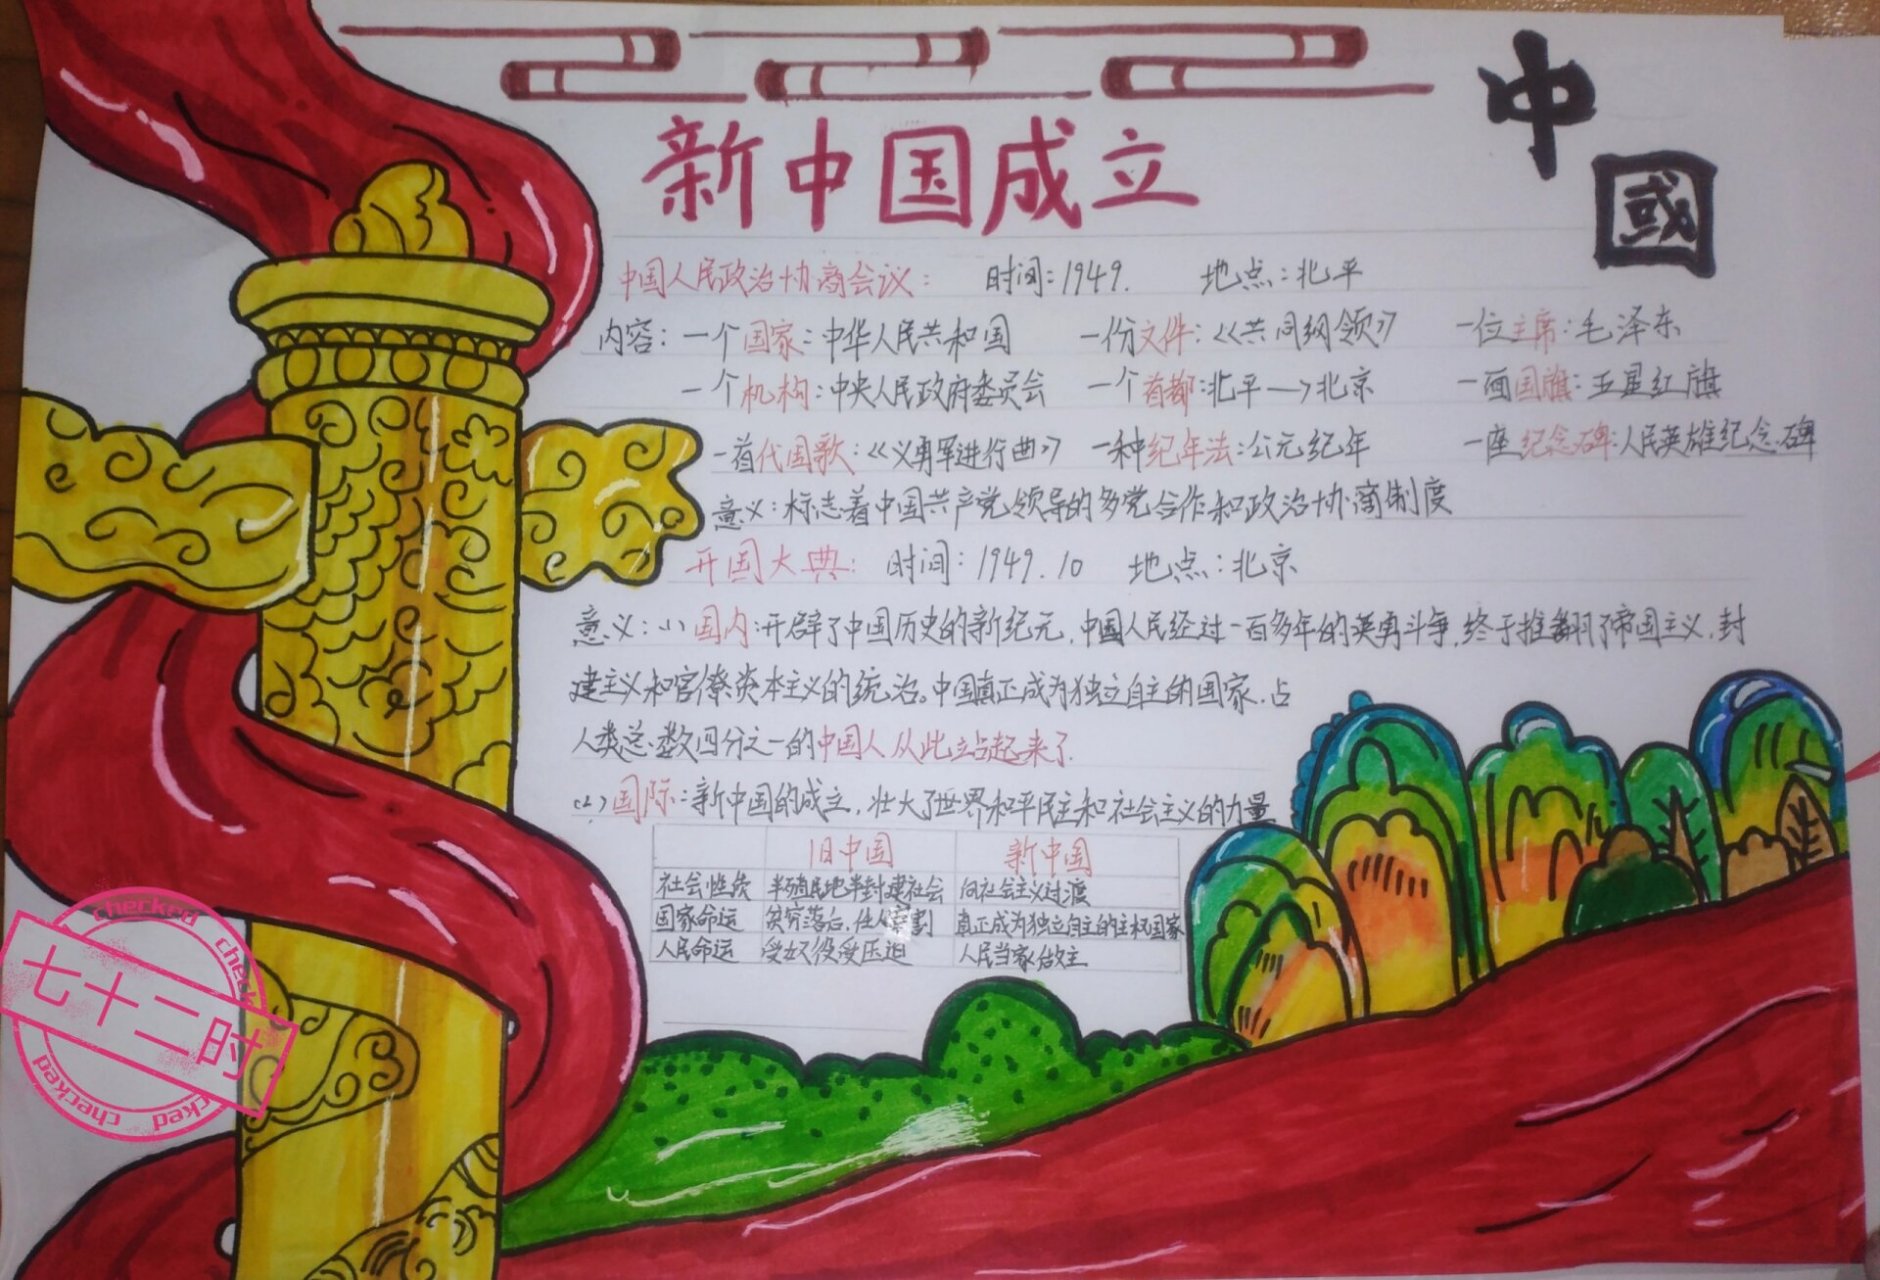 中
國
新中国成立
中国人民政治协商会议: 时间:1949. 地点:北平
内容:一个国家:中华人民共和国 一份文件:《共同纲领》 一位主席:毛泽东
一个机构:中央人民政府委员会 一个首都:北平→北京 一面国旗:五星红旗
一首代国歌:《义勇军进行曲》 一种纪年法:公元纪年 一座纪念碑:人民英雄纪念碑
意义:标志着中国共产党领导的多党合作和政治协商制度
开国大典: 时间:1949.10 地点:北京
意义:(1)国内:开辟了中国历史的新纪元,中国人民经过一百多年的英勇斗争,终于推翻了帝国主义,封
建主义和官僚资本主义的统治。中国真正成为独立自主的国家,占
人类总数四分之一的中国人从此站起来了.
(2)国际:新中国的成立,壮大了世界和平民主和社会主义的力量
旧中国 新中国
社会性质 半殖民地半封建社会 向社会主义过渡
国家命运 贫穷落后,任人宰割 真正成为独立自主的主权国家
人民命运 受奴役受压迫 人民当家做主
checked check
七十二时
checked checked